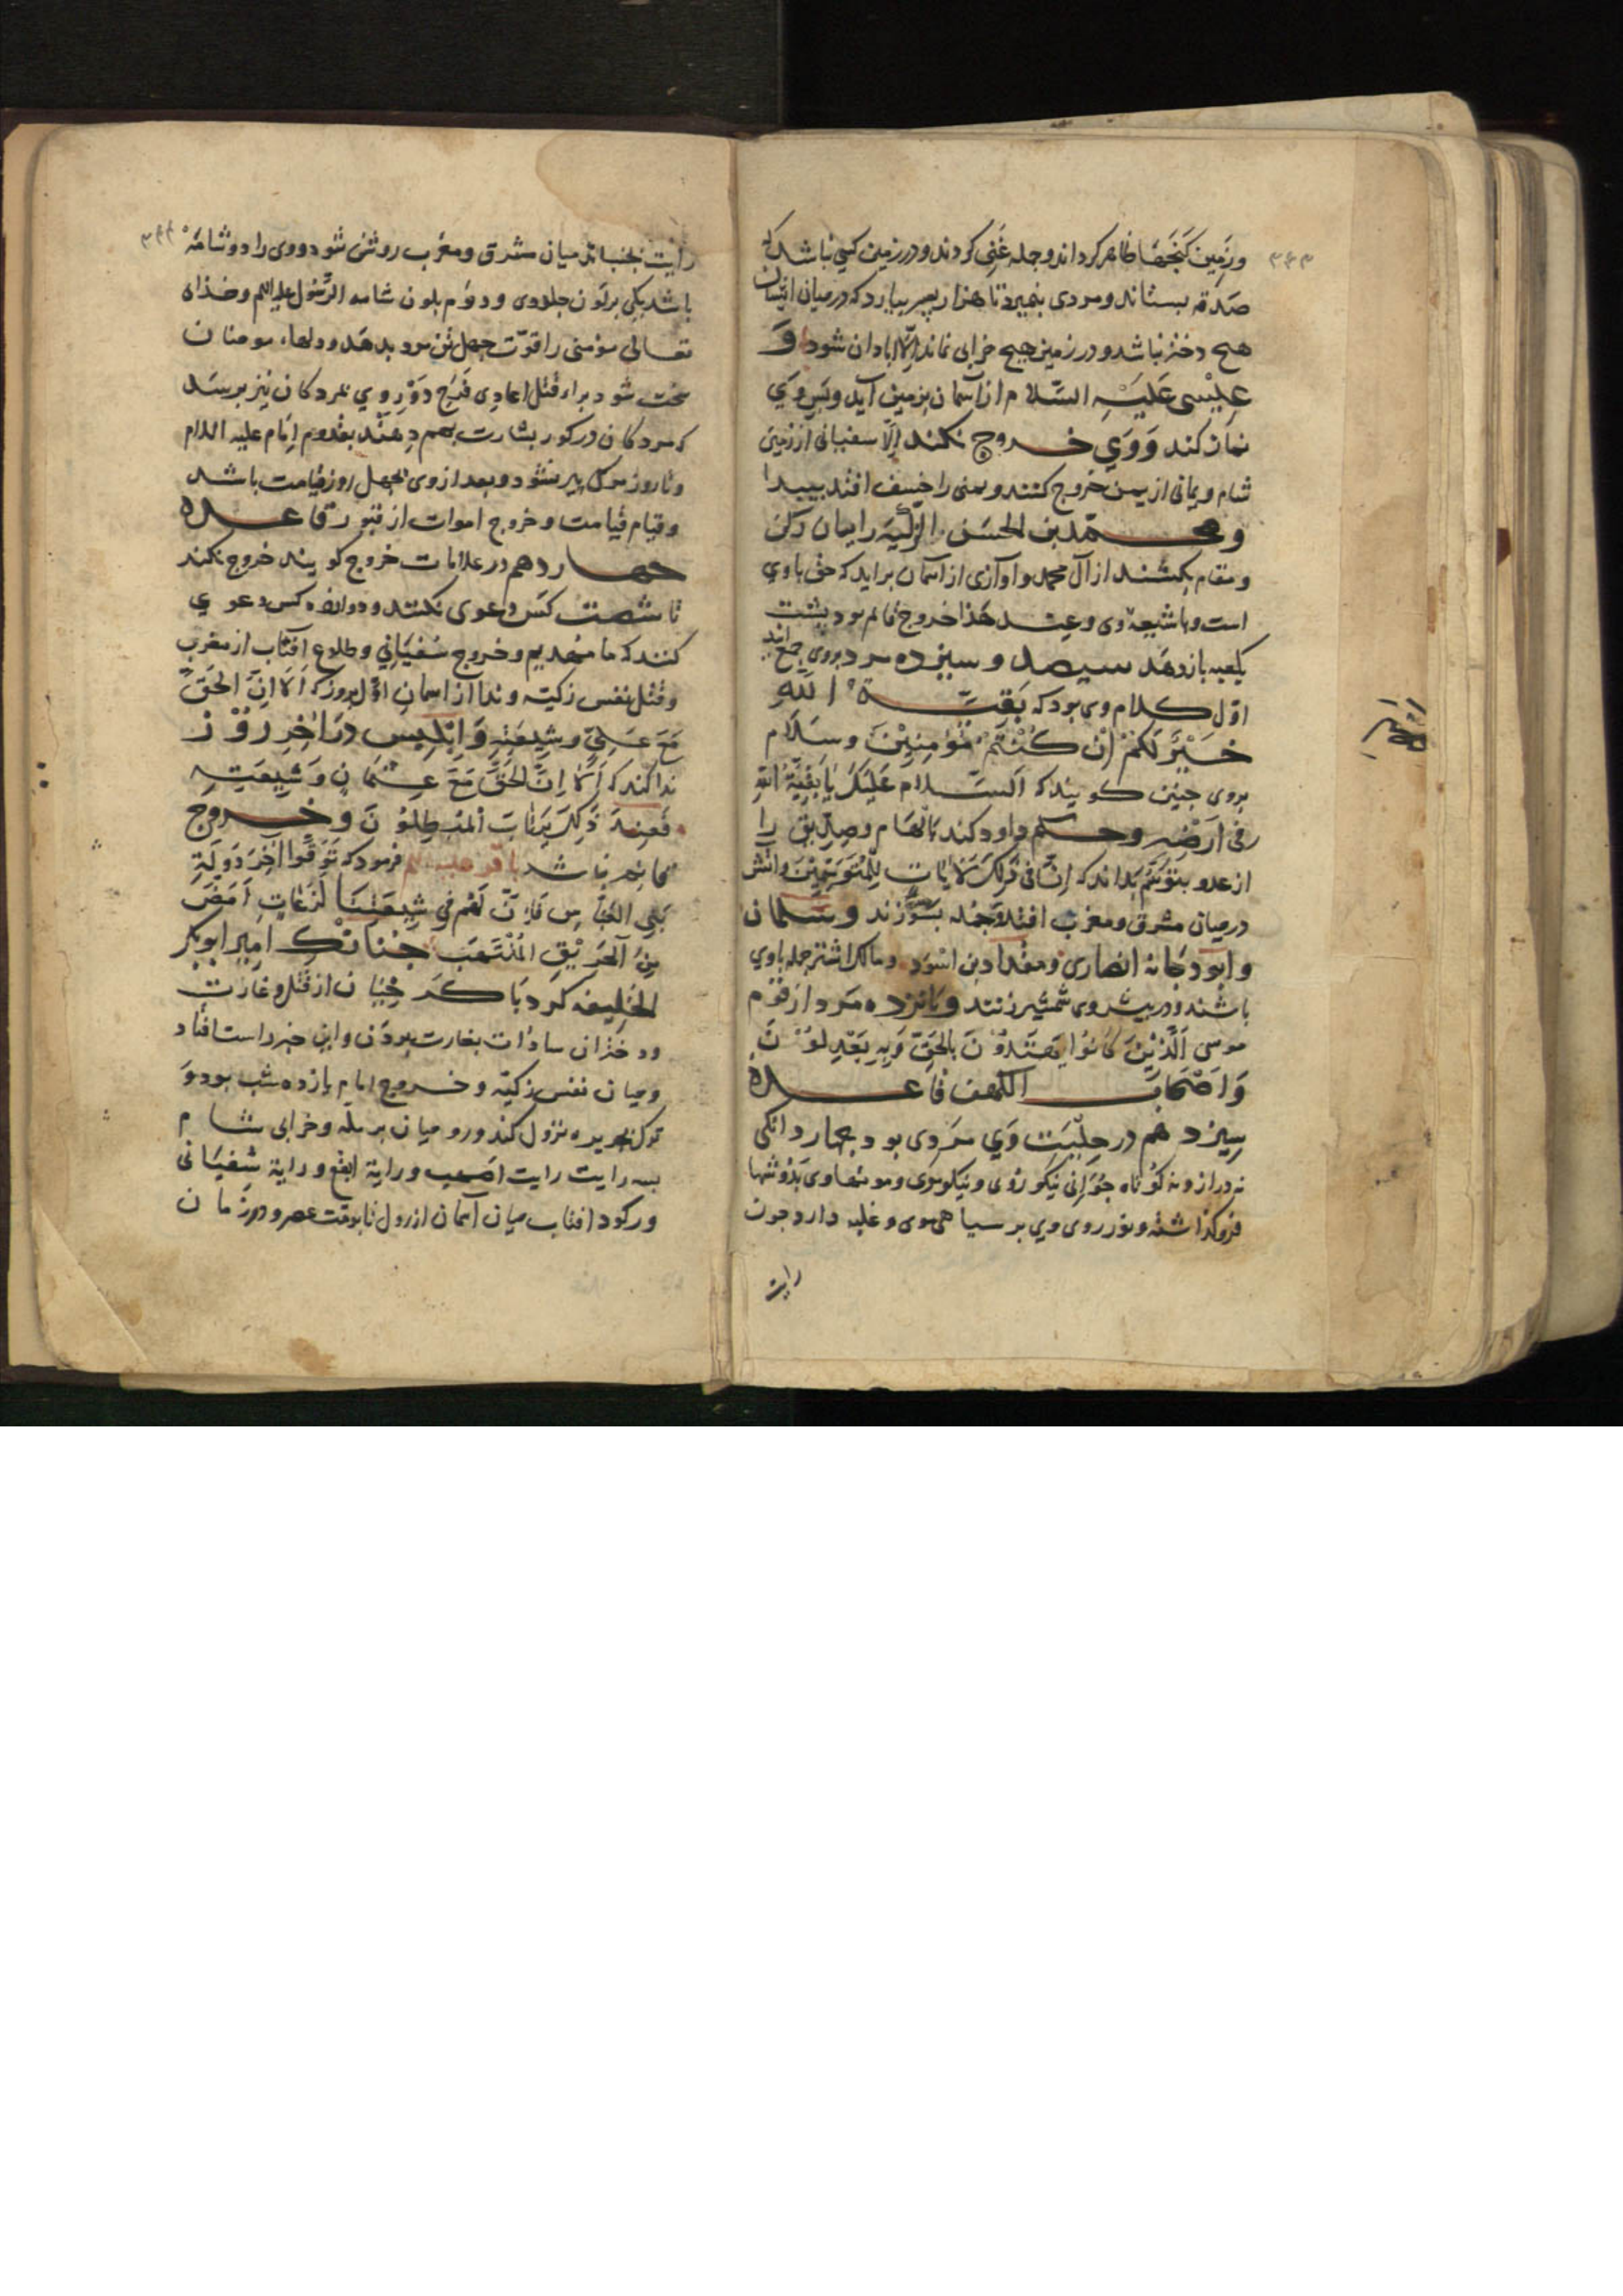 وزمین گنجها ظاهر کرداند وجمله غنی کردند ودر زمین کسی نباشد که
صدقه بستاند ومردی نمیرد تا هزار پسر بیارد که در میان ایشان
هیچ دختر نباشد ودر زمین هیچ خرابی نماند الا ابادان شود و
عیسی علیه السلام از آسمان بزمین آید وپس وی
نماز کند ووی خروج نکند الا سفیانی از زمین
شام ویمانی از یمن خروج کنند و را خسف افتد ببیدا
ومحمد بن الحسن الزکیه را میان رکن
ومقام بکشند از آل محمد واوازی از آسمان براید که حق باوی
است وباشیعه وی وعند هذا خروج قائم بود پشت
بکعبه بازدهد سیصد وسیزده مرد بروی جمع ایند
اول کلام وی بود که بقیة الله
خیر لکم ان کنتم مؤمنین وسلام
بروی چنین کویند که السلام علیک یا بقیة الله
فی ارضه وحکم داود کند بالهام وصدیق را
از عدو بتوسم بداند که ان فی ذلک لایات للمتوسمین واتش
در میان مشرق ومغرب افتد وسلمان
وابو دجانه انصاری ومقداد بن اسود ومالک اشتر جمله باوی
باشند ودر پیش وی شمشیر زنند وپانزده مرد از قوم
موسی الذین کانوا یهتدون بالحق وبه یعدلون
واصحاب الکهف قاعده
سیزدهم در حلیت وی مردی بود بچهار دانکی
نه دراز ونه کوتاه جوانی نیکو روی ونیکو موی ومویهاوی بدوشها
فروکذاشته ونور روی وی بر سیاهی موی وغلبه دارد چون
رایت
رایت بجنباند میان مشرق ومغرب روشن شود ووی را دو شامه
باشد یکی بر لون جلد وی ودوم بلون شامه الرسول علیه السلم وخدای
تعالی مؤمنی را قوت چهل تن مرد بدهد ودلهاء مومنان
سخت شود براء قتل اعادی فرج دور وی بمردکان نیز برسد
که مردکان در کور بشارت بهم دهند بقدوم امام علیه السلام
وتا روز مرک پیر نشود وبعد از وی بچهل روز قیامت باشد
وقیام قیامت وخروج اموات از قبور قاعده
چهاردهم در علامات خروج کویند خروج نکند
تا شصت کس دعوی نکنند ودوازده کس دعوی
کنند که ما مهدیم وخروج سفیانی وطلوع افتاب از مغرب
وقتل نفس زکیه وندا از اسمان اول روز که الا ان الحق
مع علی وشیعته وابلیس در اخر روز
ندا کند که الا ان الحق مع عثمان وشیعته
فعند ذلک یرتاب المبطلون وخروج
قائم باشد باقر علیه السلم فرمود که توقوا اخر دولة
بنی العباس فان لهم فی شیعتنا لذعات امض
من الحریق الملتهب چنانک امیر ابوبکر
الخلیفه کرد با کرخیان از قتل وغارت
ودختران سادات بغارت بردن واین خبر راست افتاد
ومیان نفس زکیه وخروج امام پانزده شب بود و
ترک بجزیره نزول کند وروم میان برمله وخرابی شام
بسه رایت رایت اصهب ورایة ابقع ورایة سفیانی
ورکود افتاب میان آسمان از زوال تا بوقت عصر ودر زمان